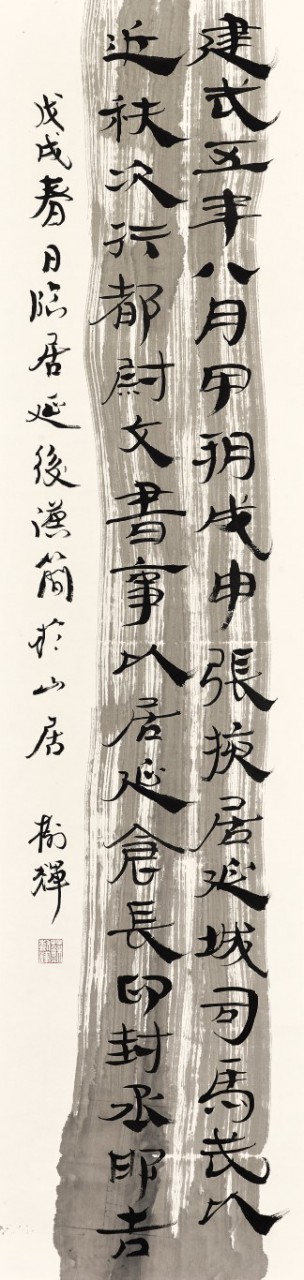 建武五年八月甲朔戊申張掖居延城司馬武以
近秩次行都尉文書事以居延倉長印封丞邯告
戊戌春日臨居延後漢簡於山居 樹輝